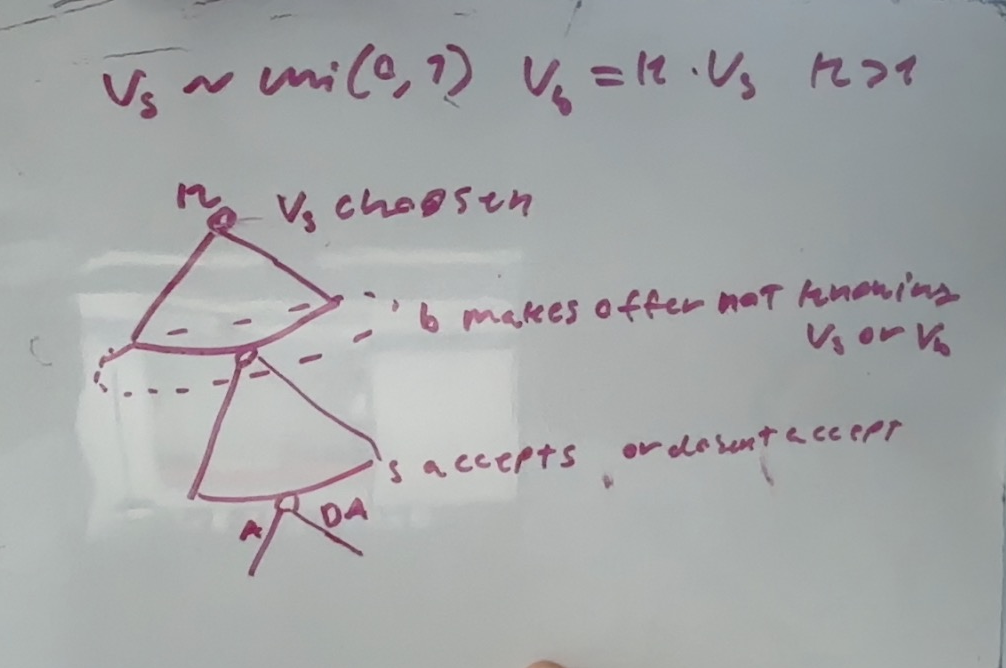 Vs ~ uni(0,1) Vb = k · Vs k>1
n Vs choosen
b makes offer not knowing
Vs or Vb
s accepts or dosent accept
A DA